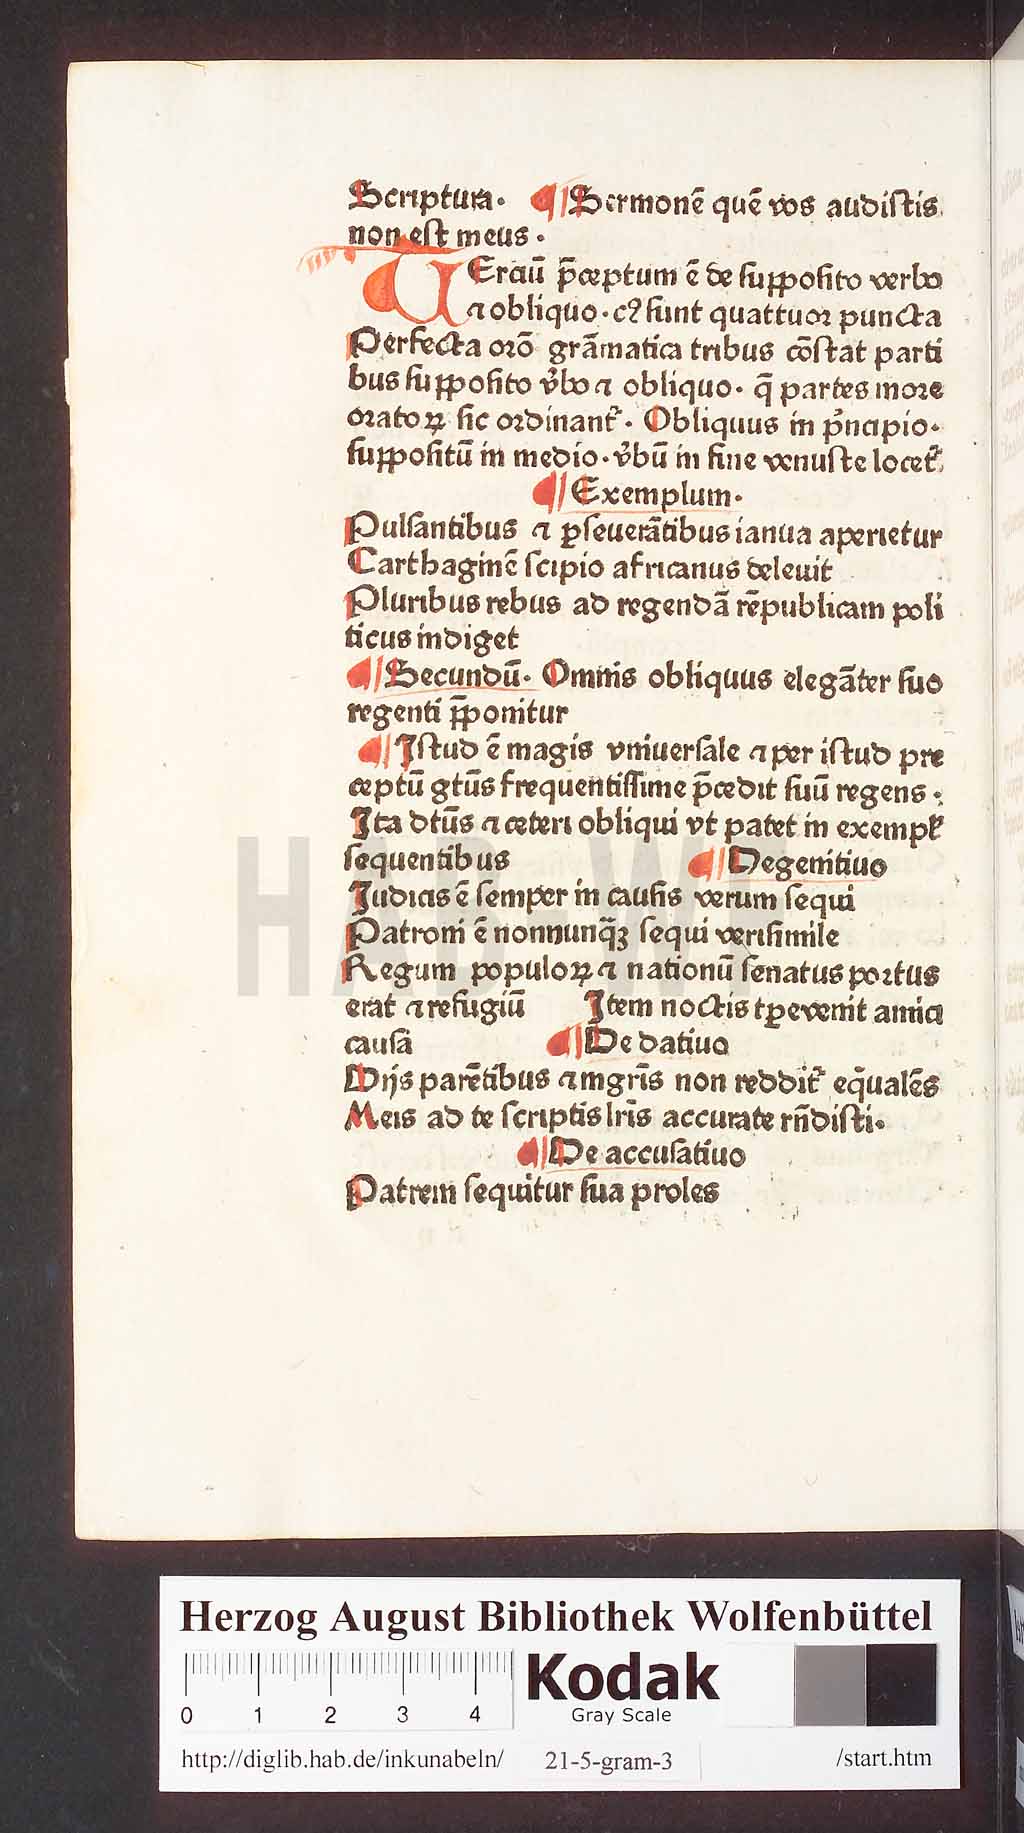 Scriptura. ¶ Sermonē quē vos audiſtis
non eſt meus.
TErciū p̄ceptum ē de ſuppoſito verbo
⁊ obliquo. cꝰ ſunt quattuoꝛ puncta
Perfecta oꝛō grāmatica tribus cōſtat parti
bus ſuppoſito v̄bo ⁊ obliquo. q̄ partes moꝛe
oꝛatoꝝ ſic oꝛdinant᷑. Obliquus in pͥncipio.
ſuppoſitū in medio. v̄bū in fine venuſte locet᷑.
¶ Exemplum.
Pulſantibus ⁊ ꝑſeuerātibus ianua aperietur
Carthaginē ſcipio africanus deleuit
Pluribus rebus ad regendā rēpublicam poli
ticus indiget
¶ Secundū. Omnis obliquus elegāter ſuo
regenti p̄ponitur
¶ Iſtud ē magis vniuerſale ⁊ per iſtud pre
ceptū gtūs frequentiſſime p̄cedit ſuū regens.
Ita dtūs ⁊ ceteri obliqui vt patet in exempꝉ
ſequentibus ¶ De genitiuo
Iudicis ē ſemper in cauſis verum ſequi
Patroni ē nonnunq̄ꝫ ſequi veriſimile
Regum populoꝝ ⁊ nationū ſenatus poꝛtus
erat ⁊ refugiū Item noctis tꝑe venit amici
cauſā ¶ De datiuo
Dijs parētibus ⁊ mgr̄is non reddit᷑ eq̄uales
Meis ad te ſcriptis lr̄is accurate rn̄diſti.
¶ De accuſatiuo
Patrem ſequitur ſua proles
HAB-WF
Herzog August Bibliothek Wolfenbüttel
0 1 2 3 4
Kodak
Gray Scale
http://diglib.hab.de/inkunabeln/ 21-5-gram-3 /start.htm